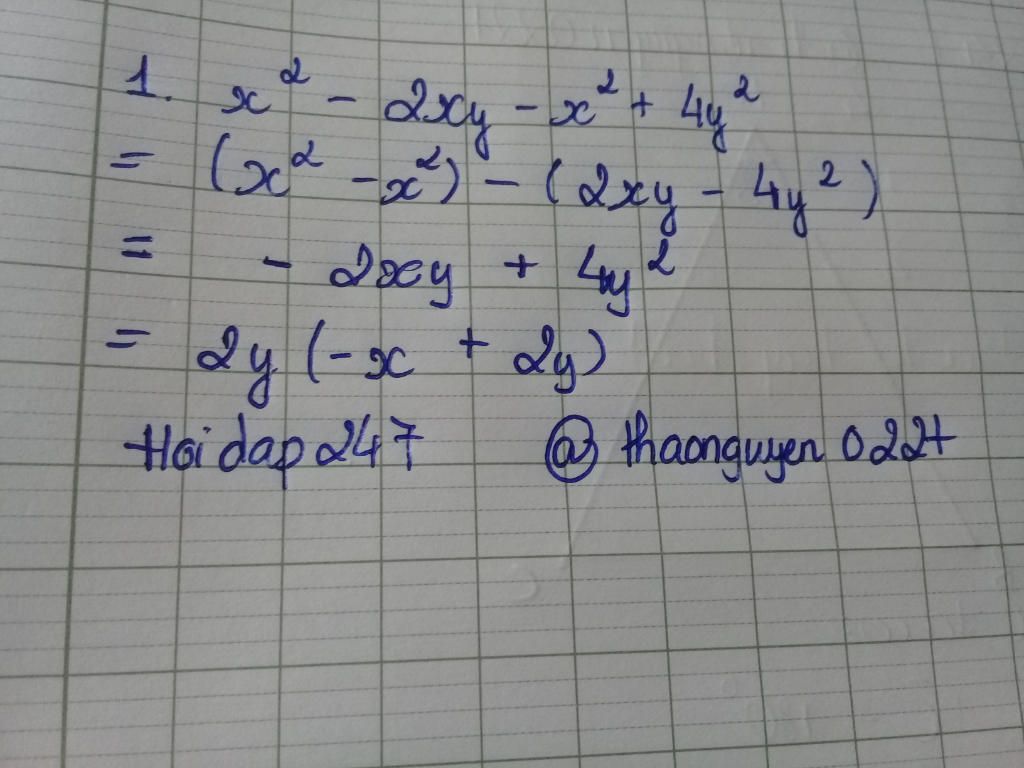 1. x² - 2xy - x² + 4y²
= (x² - x²) - (2xy - 4y²)
= - 2xy + 4y²
= 2y (-x + 2y)
Hoidap247 @thaonguyen022+